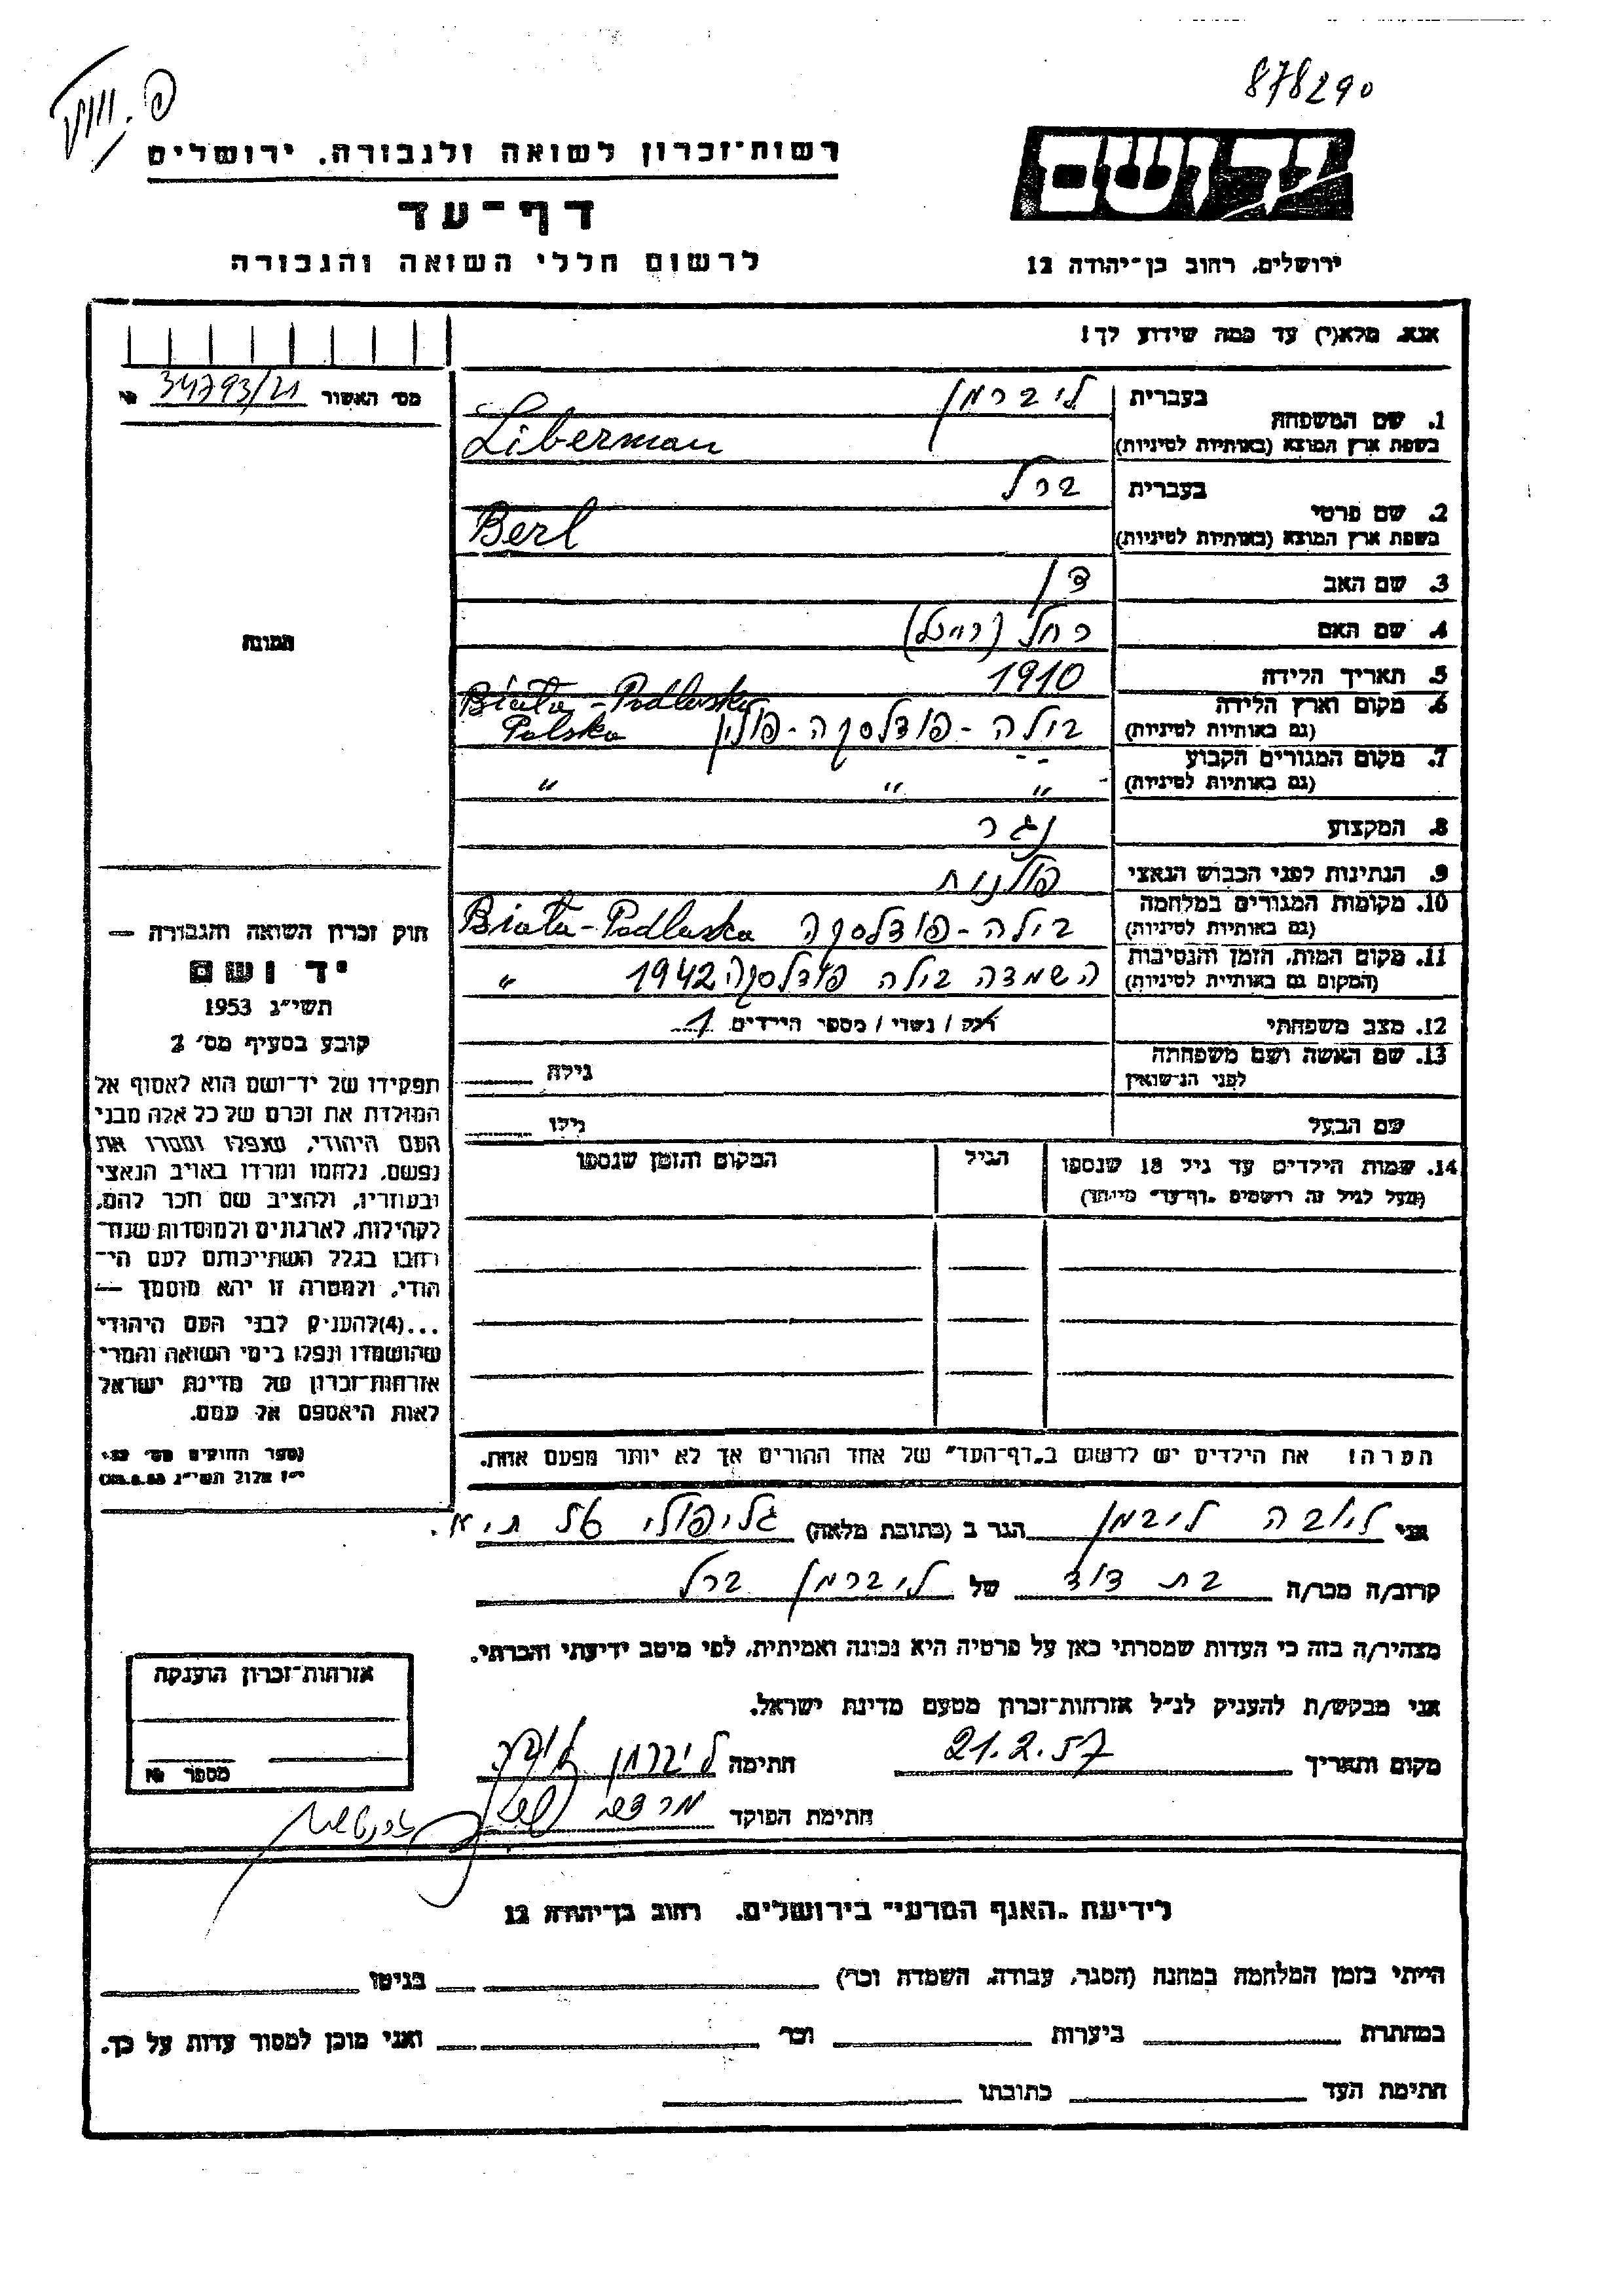 878290
רשות־זכרון לשואה ולגבורה, ירושלים
יד ושם
דף־עד
לרשום חללי השואה והגבורה
ירושלים, רחוב בן־יהודה 12
אנא, מלא(י) עד כמה שידוע לך!
מס׳ האשור 34793/21 №
תמונה
בעברית ליברמן
1. שם המשפחה
בשפת ארץ המוצא (באותיות לטיניות) Liberman
בעברית ברל
2. שם פרטי
בשפת ארץ המוצא (באותיות לטיניות) Berl
3. שם האב דן
4. שם האם רחל
5. תאריך הלידה 1910
6. מקום וארץ הלידה Biała-Podlaska
(גם באותיות לטיניות) בילה-פודלסקה-פולין Polska
7. מקום המגורים הקבוע
(גם באותיות לטיניות) " " "
8. המקצוע נגר
9. הנתינות לפני הכבוש הנאצי פולנית
10. מקומות המגורים במלחמה
(גם באותיות לטיניות) בילה-פודלסקה Biała-Podlaska
11. מקום המות, הזמן והנסיבות
(המקום גם באותיות לטיניות) השמדה בילה פודלסקה 1942 "
12. מצב משפחתי רוק / נשוי / מספר הילדים 1
13. שם האשה ושם משפחתה
לפני הנישואין גילה
שם הבעל גילו
14. שמות הילדים עד גיל 18 שנספו הגיל המקום והזמן שנספו
(מעל לגיל זה רושמים "דף־עד" מיוחד)
הערה! את הילדים יש לרשום ב"דף־העד" של אחד ההורים אך לא יותר מפעם אחת.
חוק זכרון השואה והגבורה —
יד ושם
תשי״ג 1953
קובע בסעיף מס׳ 2
תפקידו של יד־ושם הוא לאסוף אל
המולדת את זכרם של כל אלה מבני
העם היהודי, שנפלו ומסרו את
נפשם, נלחמו ומרדו באויב הנאצי
ובעוזריו, ולהציב שם וזכר להם,
לקהילות, לארגונים ולמוסדות שנח־
רבו בגלל השתייכותם לעם הי־
הודי, ולמטרה זו יהא מוסמך —
...(4) להעניק לבני העם היהודי
שהושמדו ונפלו בימי השואה והמרי
אזרחות־זכרון של מדינת ישראל
לאות היאספם אל עמם.
(ספר החוקים מס׳ 132
י״ז אלול תשי״ג 28.8.53)
אני ליובה ליברמן הגר ב (כתובת מלאה) גליפולי ת״א.
קרוב/ה מכר/ה בת דוד של ליברמן ברל
מצהיר/ה בזה כי העדות שמסרתי כאן על פרטיה היא נכונה ואמיתית, לפי מיטב ידיעתי והכרתי.
אני מבקש/ת להעניק לנ״ל אזרחות־זכרון מטעם מדינת ישראל.
מקום ותאריך 21.2.57 חתימה ליברמן ליובה
חתימת הפוקד
אזרחות־זכרון הוענקה
מספר №
לידיעת "האגף המדעי" בירושלים, רחוב בן־יהודה 12
הייתי בזמן המלחמה במחנה (הסגר, עבודה, השמדה וכו׳) בגיטו
במחתרת ביערות וכו׳ ואני מוכן למסור עדות על כך.
חתימת העד כתובתו